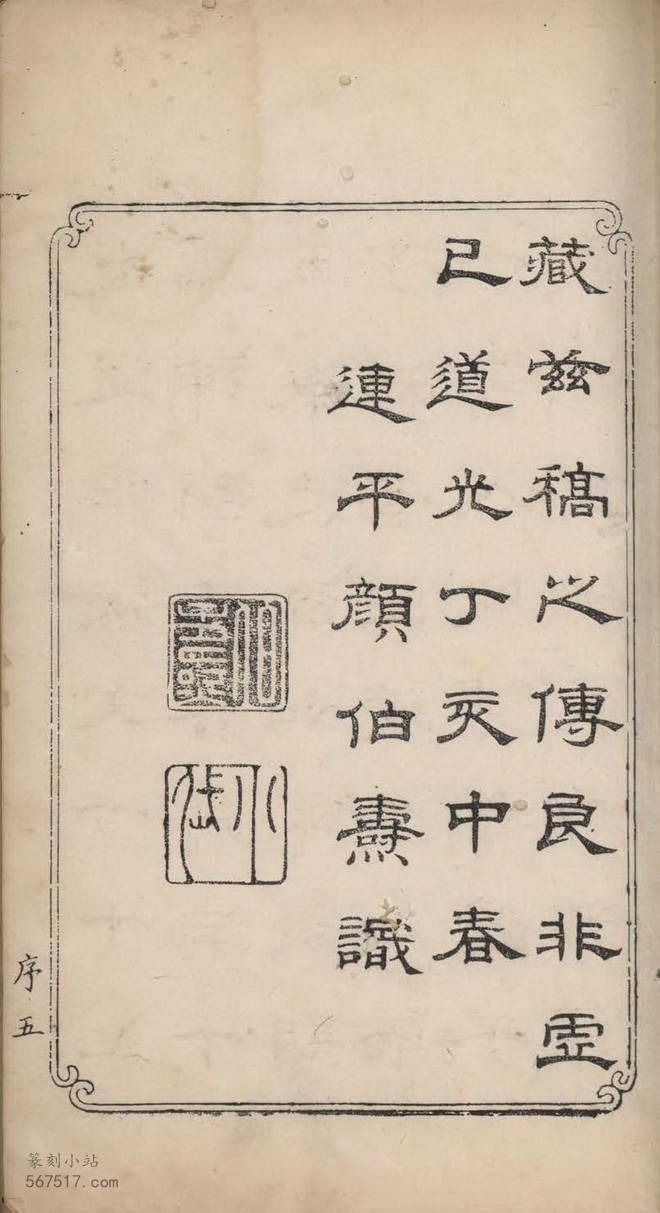 藏茲稿之傳良非虛
已道光丁亥中春
連平顏伯燾識
序五
篆刻小站
567517.com